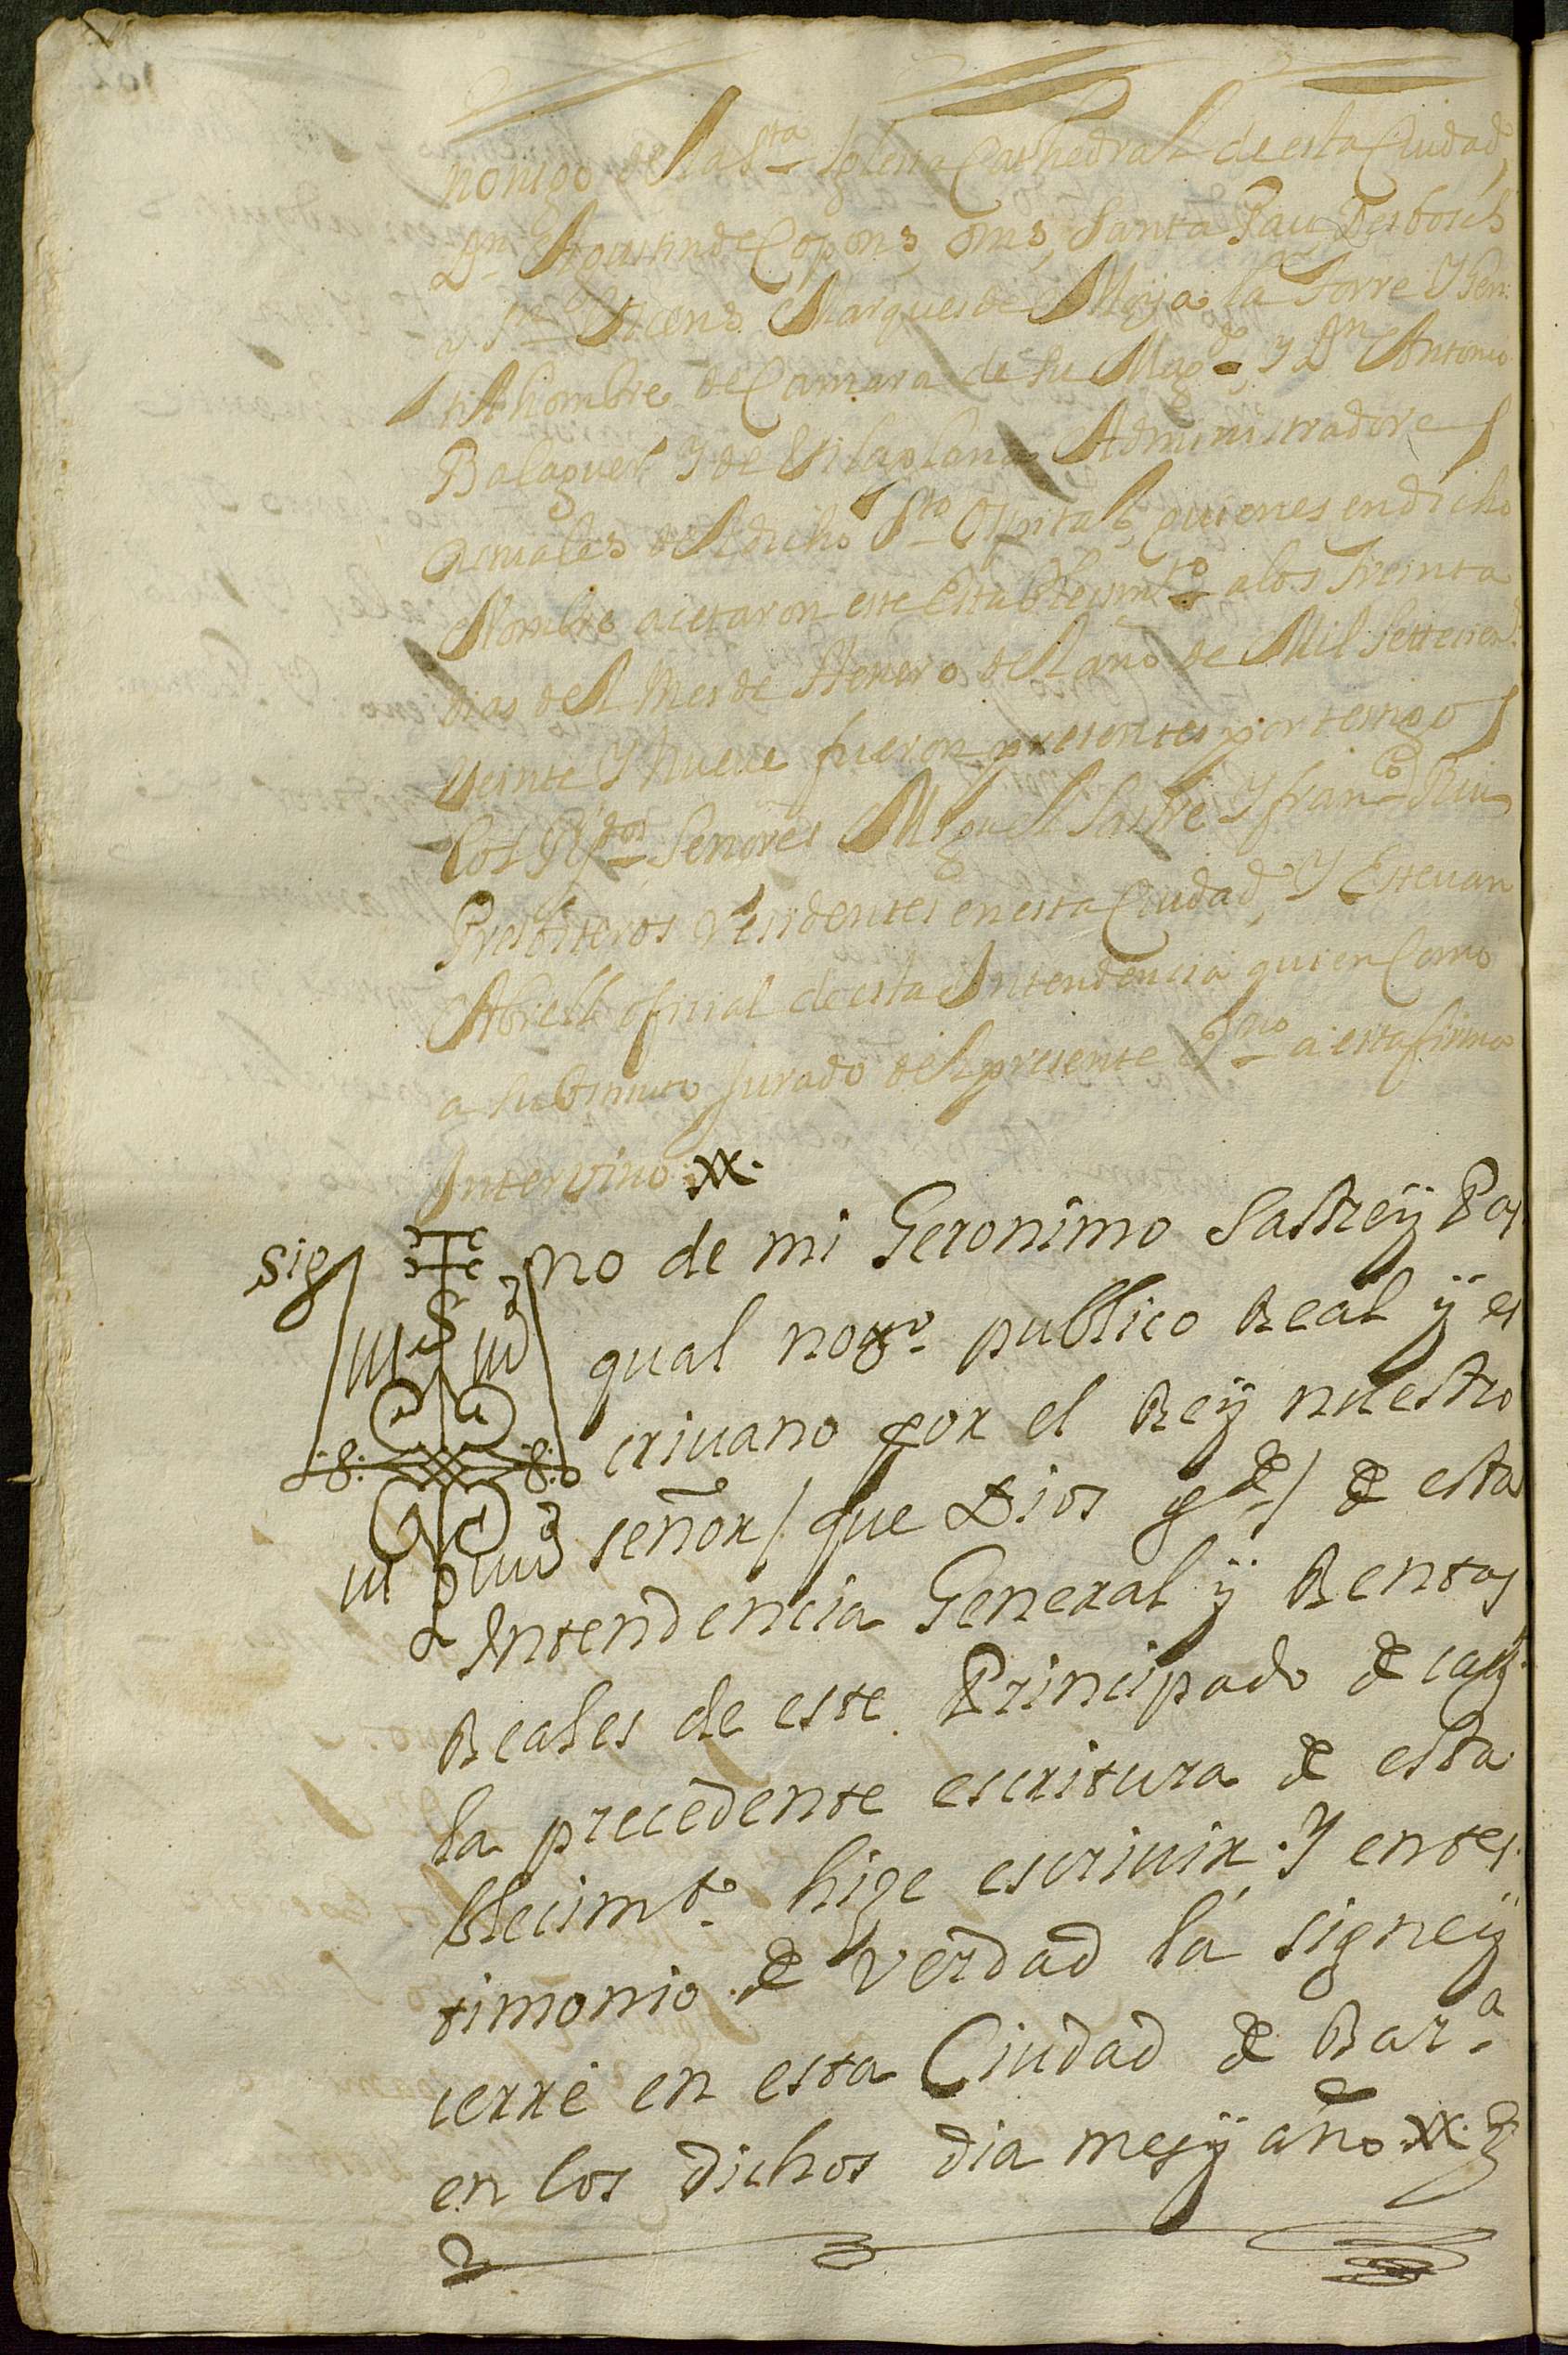 nonigo de la Sta Iglesia Cathedral de esta Ciudad,
Dn Agustin de Copons, oms, Santa Pau, Desbosch
y Sn Vicens Marques de Moya, la Torre Y Gen:
til hombre de Camara de su Magd, y Dn Antonio
Balaguer Y de Vilaplana Administradores
Actuales del dicho Sto Ospital, quienes en dicho
Nombre acetaron este Establecimto a los treinta
dias del Mes de Henero del año de Mil Settecien.
veinte Y nueve fueron presentes por testigos
los Rdos Señores Miguel Sastre Y franco Riu
Presbiteros residentes en esta Ciudad, Y Estevan
Abrell oficial de esta Intendencia quien Como
a substituto Jurado del presente Esno a esta firma
Intervino
Sig no de mi Geronimo Sastre ÿ Pas
qual noto publico Real ÿ es
crivano por el Reÿ nuestro
señor / que Dios gde / de esta
Intendencia General ÿ Rentas
Reales de este Principado de
la precedente escritura de esta
blecimto hize escrivir Y en tes
timonio de verdad la signe ÿ
cerré en esta Ciudad de Bara
en los dichos dia mes ÿ año